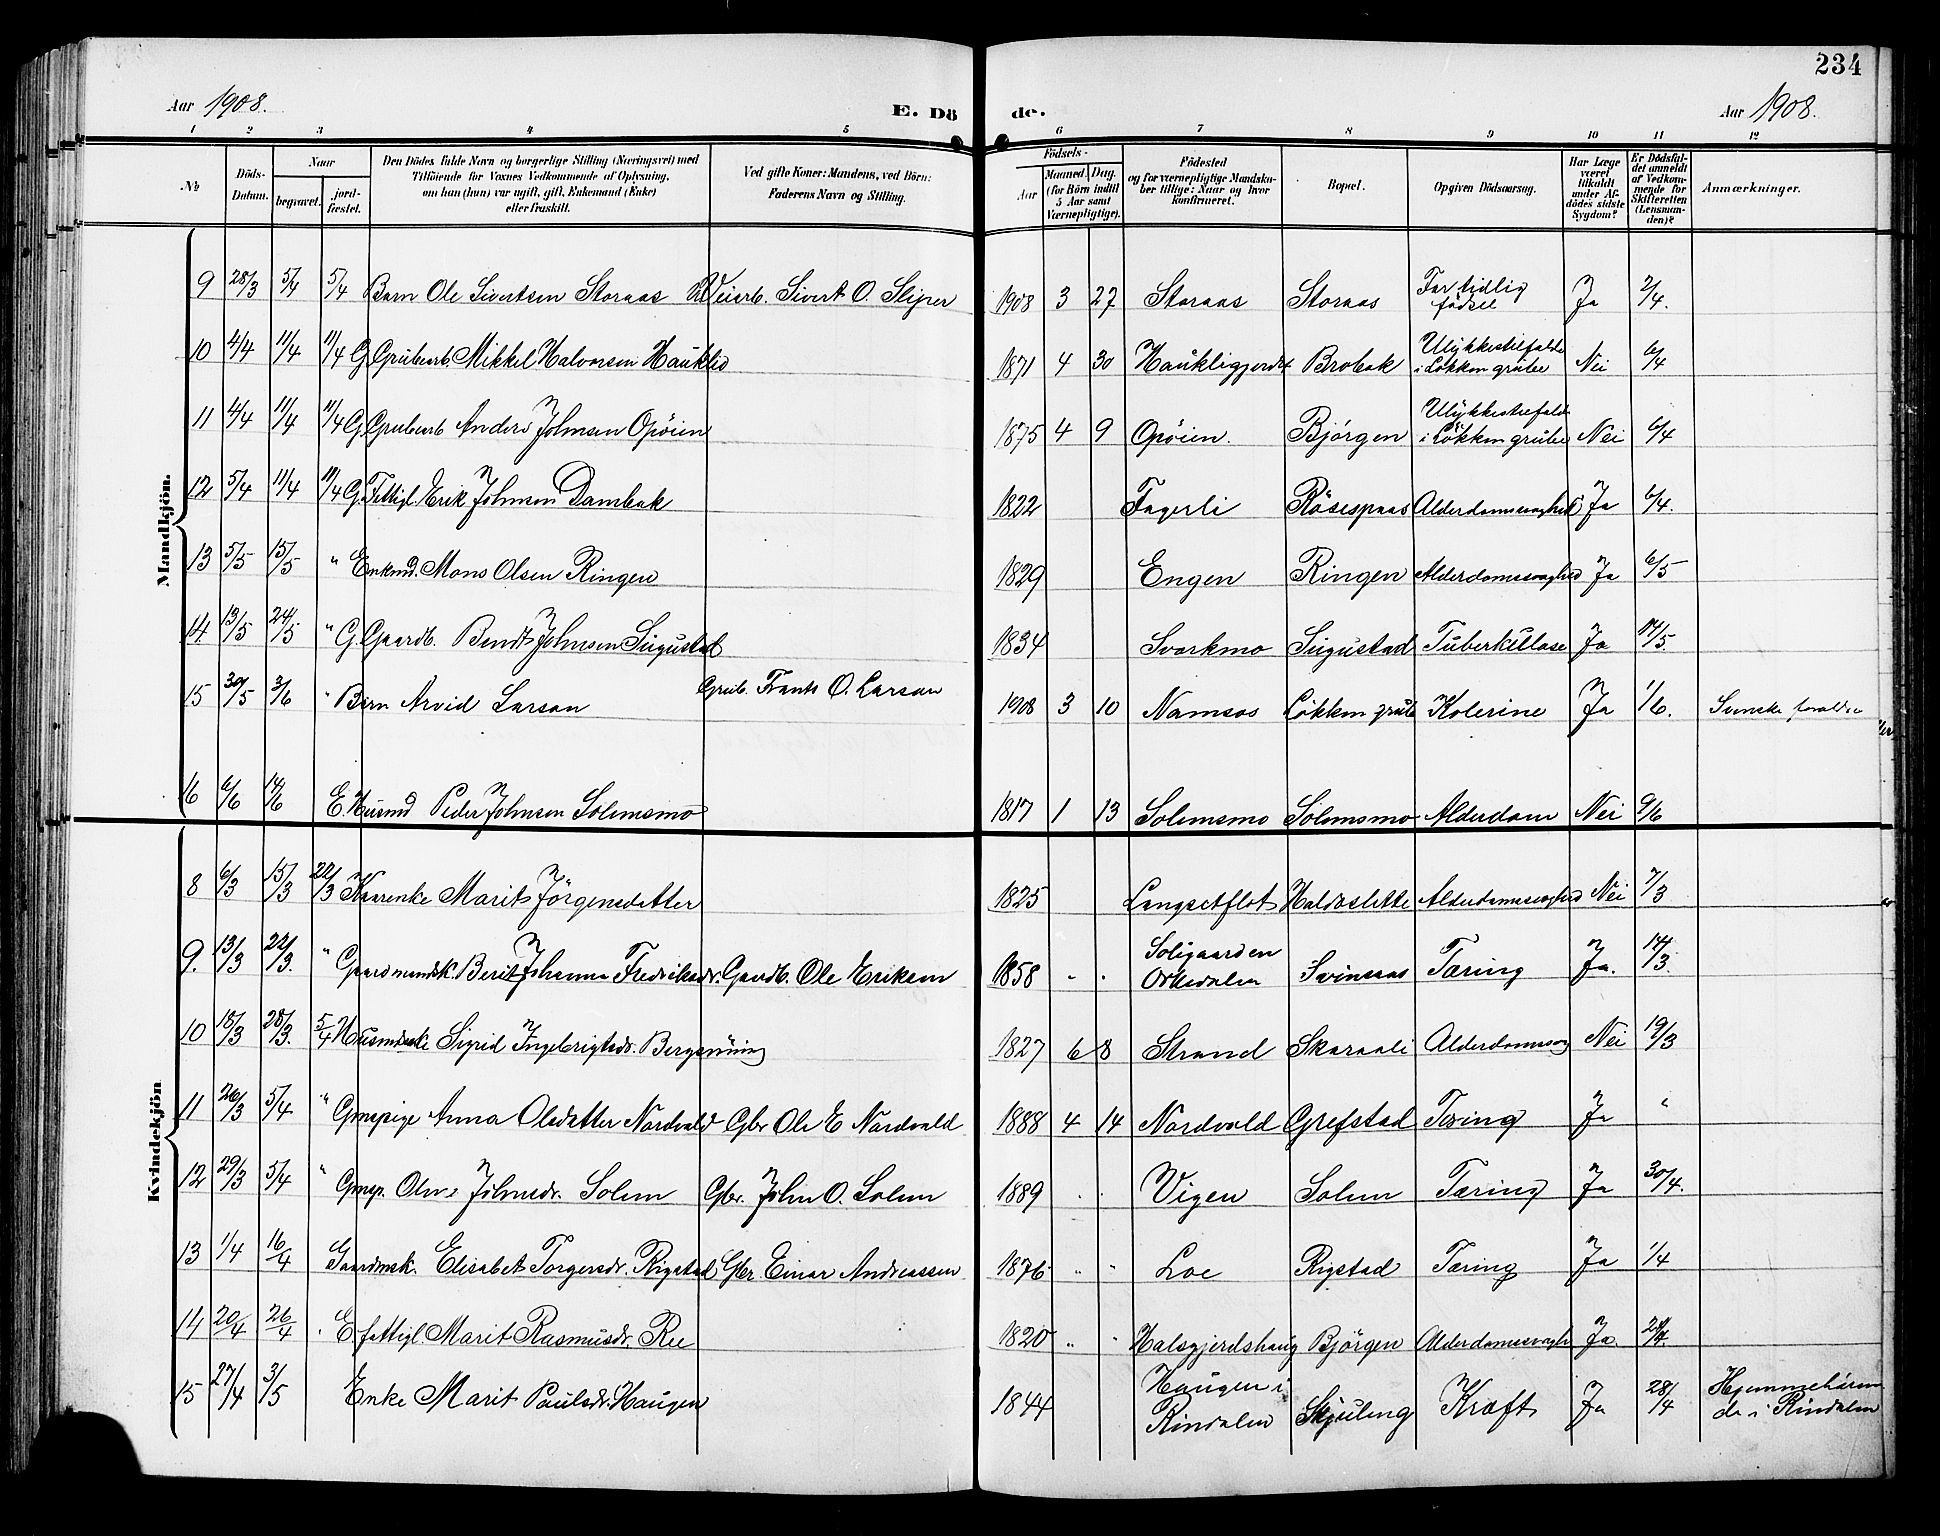 234
Aar 1908.
E. Dö de.
Aar 1908.
1 2 3 4 5 6 7 8 9 10 11 12
№
Döds-
Datum.
Naar
begravet.
jord-
fæstet.
Den Dödes fulde Navn og borgerlige Stilling (Næringsvei) med
Tilföiende for Voxnes Vedkommende af Oplysning,
om han (hun) var ugift, gift, Enkemand (Enke)
eller fraskilt.
Ved gifte Koner: Mandens, ved Börn:
Faderens Navn og Stilling.
Födsels-
Aar
Maaned. Dag.
(for Börn indtil
5 Aar samt
Værnepligtige).
Födested
og for værnepligtige Mandskaber
ber tillige: Naar og hvor
konfirmeret.
Bopæl.
Opgiven Dödsaarsag.
Har Læge
været
tilkaldt
under Af-
dödes sidste
Sygdom?
Er Dödsfal-
det anmeldt
af Vedkom-
mende for
Skifteretten
(Lensman-
den)?
Anmærkninger.
Mandkjön.
9 28/3 5/4 5/4 Barn Ole Sivertsen Storaas Veiarb. Sivert O. Stiper 1908 3 27 Storaas Storaas For tidlig fødsel Ja 2/4.
10 4/4 11/4 11/4 G Grubearb. Mikkel Halvorsen Hauklid 1871 4 30 Haukligjerdet Brobak Ulykkestilfælde i Løkken grube Nei 6/4
11 4/4 11/4 11/4 G. Grubearb Anders Johnsen Opøien 1875 4 9 Opøien. Bjørgen Ulykkestilfælde i Løkken grube Nei 6/4
12 5/4 11/4 11/4 G. Fattigl. Erik Johnsen Dambak 1822 Fagerli Røsespaas Alderdomssvaghed Ja 6/4.
13 5/5 15/5 " Enkemd. Mons Olsen Ringen 1829 Engen Ringen Alderdomssvaghed Ja 6/5
14 13/5 24/5 " G. Gaardb. Bendt Johnsen Sugustad 1834 Svorkmo Sugustad Tuberkulose Ja 14/5.
15 30/5 3/6 " Barn Arvid Larson Grub. Frants O. Larson 1908 3 10 Namsos Løkken grube Kolerine Ja 1/6. Svenske forældre
16 6/6 14/6 E. Husmd Peder Johnsen Solemsmo 1817 1 13 Solemsmo Solemsmo Alderdom Nei 9/6
Kvindekjön
8 6/3 15/3 22/3 Kaarenke Marit Jörgensdatter 1825 Langsetflot Haldoslette Alderdomssvaghed Nei 7/3
9. 13/3 22/3. " Gaardmandsk. Berit Johanna Fredriksdr. Gaardb. Ole Eriksen 1858 " " Soligaarden Orkedalen Svinsaas Tæring Ja. 14/3
10 18/3 28/3. 5/4 Husmdsenke Sigrid Ingebrigtsdr. Bergsrøning 1827 6 8 Strand Skaraali Alderdomssvag Nei 19/3
11 26/3 5/4 " Gmspige Anna Olsdatter Nordvald Gbr Ole E Nordvald 1888 4 14 Nordvald Grefstad Tæring Ja "
12 29/3 5/4 " Gmsp. Oline Johnsdr. Solem Gbr. John O. Solem 1889 " " Vigen Solem Tæring Ja 30/4.
13 1/4 16/4 Gaardmsk. Elisabet Torgersdr. Rigstad Gbr Einar Andreassen 1876 " " Loe Rigstad Tæring Ja 1/4
14 20/4 26/4 " E fattigl. Marit Rasmusdr. Ree 1820 " " Halsgjerdshaug Bjørgen Alderdomssvagh Ja 24/4.
15 27/4 3/5 Enke Marit Paulsdr. Haugen 1844 Haugen i Rindalen Skjuling Kræft Ja 28/4 Hjemmehøren de i Rindalen